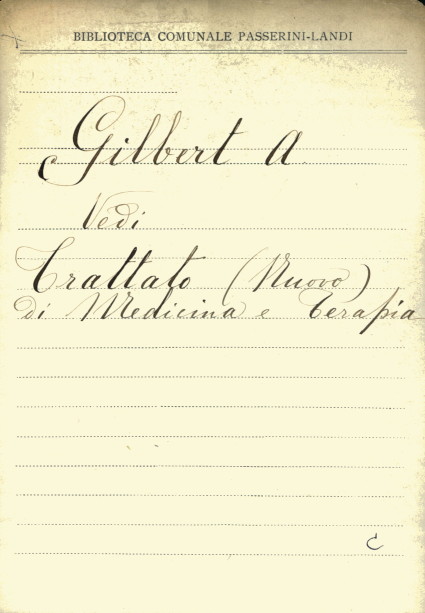 BIBLIOTECA COMUNALE PASSERINI-LANDI
Gilbert A.
Vedi
Trattato (Nuovo)
di Medicina e Terapia
C